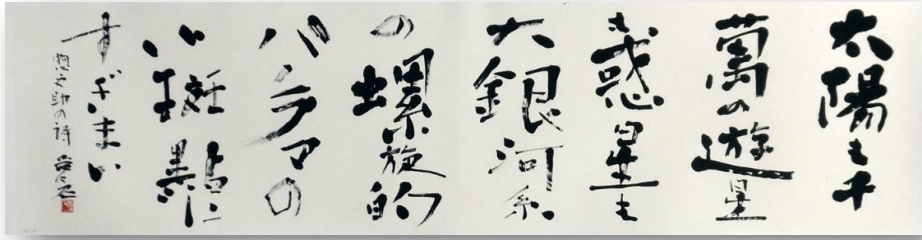 太陽も千
萬の遊星
も惑星も
大銀河系
の螺旋的
パノラマの
小斑點に
すぎまい
惣之助の詩